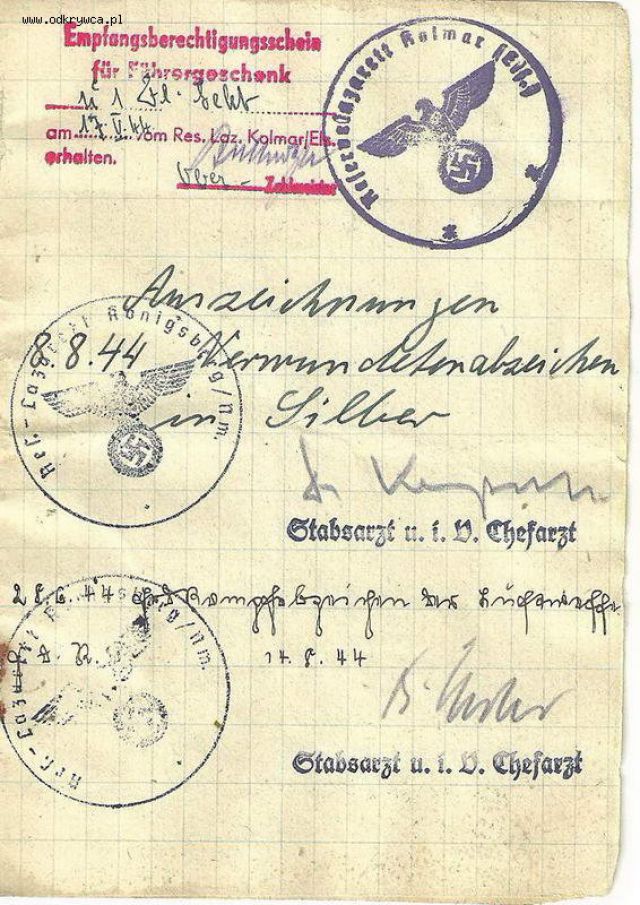 www.odkrywca.pl
Empfangsberechtigungsschein
für Führergeschenk
1 Fl. Sekt
am 17.V.44 vom Res. Laz. Kolmar/Els.
erhalten.
Ober- Zahlmeister
Reservelazarett Kolmar (Els.)
Auszeichnungen
8.8.44 Verwundetenabzeichen
in Silber
Res-Lazarett Königsberg/Nm.
Stabsarzt u. i. V. Chefarzt
28.6.44 Erdkampfabzeichen der Luftwaffe
14.8.44
Res-Lazarett Königsberg/Nm.
Stabsarzt u. i. V. Chefarzt